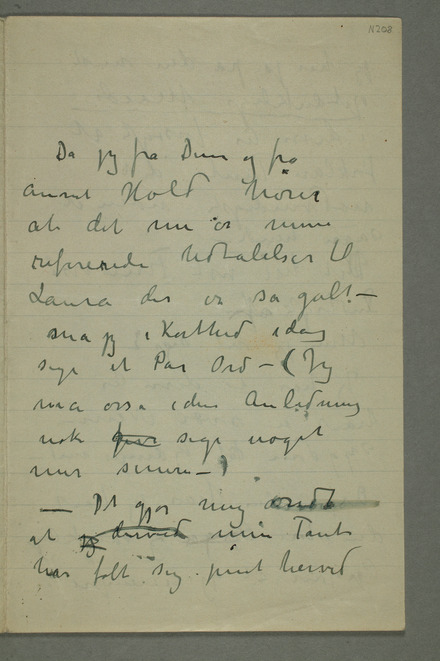 N208
Da jeg fra Dem og fra
annet Hold hører
at det nu er mine
refererede Udtalelser til
Laura der er så galt –
må jeg i Korthed idag
sige et Par Ord – (Jeg
må også i den Anledning
nok sige noget
mer senere – )
– Det gjør mig ondt
at jeg derved min Tante
har følt sig pint herved